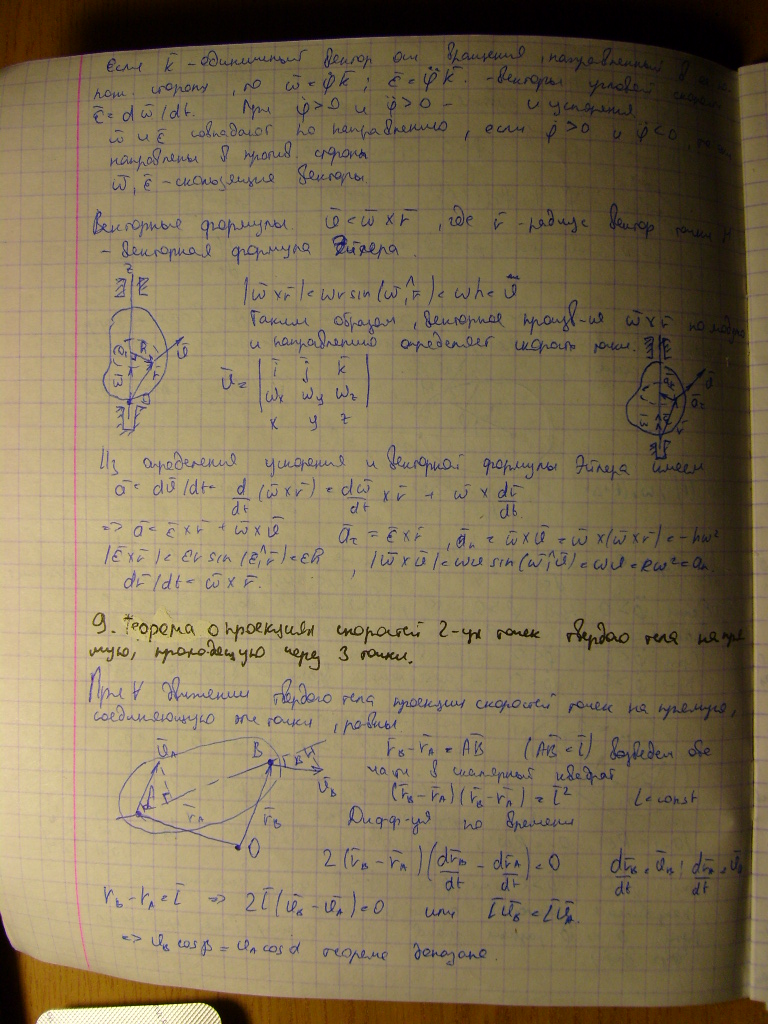 Если k̄ - единичный вектор оси вращения, направленный в
пол. сторону, то ω̄ = φ̇k̄; ε̄ = φ̈k̄. - векторы угловой скорости
ε̄ = dω̄/dt. При φ̇>0 и φ̈>0 - и ускорения.
ω̄ и ε̄ совпадают по направлению, если φ̇>0 и φ̈<0, то
направлены в против. стороны
ω̄, ε̄ - скользящие векторы.
Векторные формулы ῡ = ω̄ × r̄, где r̄ - радиус вектор точки М
- векторная формула Эйлера.
|ω̄ × r̄| = ωr sin(ω̄,^r̄) = ωh = ῡ
Таким образом, векторное произв-ие ω̄ × r̄ по модулю
и направлению определяет скорость точки.
ῡ = | ī j̄ k̄ |
| ωx ωy ωz |
| x y z |
Из определения ускорения и векторной формулы Эйлера имеем
ā = dῡ/dt = d/dt (ω̄ × r̄) = dω̄/dt × r̄ + ω̄ × dr̄/dt
=> ā = ε̄ × r̄ + ω̄ × ῡ āτ = ε̄ × r̄, ān = ω̄ × ῡ = ω̄ × (ω̄ × r̄) = -hω²
|ε̄ × r̄| = εr sin(ε̄,^r̄) = εh, |ω̄ × ῡ| = ωυ sin(ω̄,^ῡ) = ωυ = Rω² = an.
dr̄/dt = ω̄ × r̄.
9. Теорема о проекциях скоростей 2-ух точек твердого тела на пря
мую, проходящую через 3 точки.
При ∀ движении твердого тела проекции скоростей точек на прямую,
соединяющую эти точки, равны
ῡA B β ῡB A α r̄A r̄B O
r̄B - r̄A = AB̄ (AB̄ = l̄) возведем обе
части в скалярный квадрат
(r̄B - r̄A)(r̄B - r̄A) = l̄² l = const
Дифф-уя по времени
2(r̄B - r̄A)(dr̄B/dt - dr̄A/dt) = 0 dr̄B/dt = ῡB; dr̄A/dt = ῡA
rB - rA = l̄ => 2l̄(ῡB - ῡA) = 0 или l̄ῡB = l̄ῡA.
=> υB cosβ = υA cosα теорема доказана.